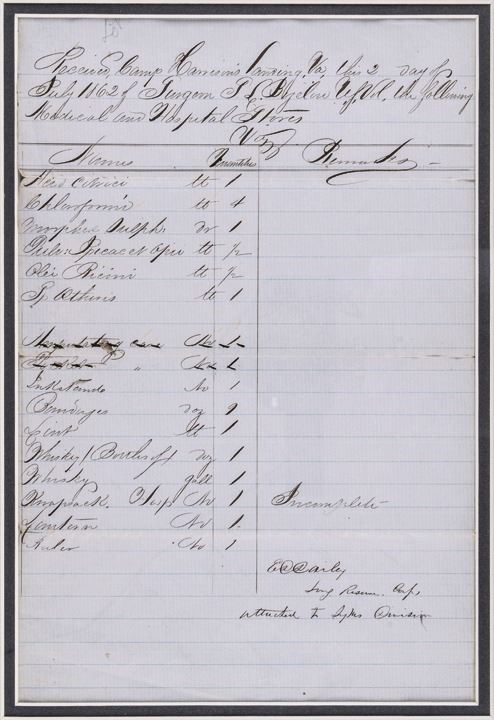 Received, Camp Harrisons Landing Va, this 2 day of
July 1862 of Surgeon Bigelow Vol. the following
Medical and Hospital Stores
Viz
Names Quantities Remarks
Acid Citrici lb 1
Chloroformi lb 4
Morphia Sulph. dr 1
Pulv Ipecac et Opii lb 1/2
Olei Ricini lb 1/2
Sp Etheris lb 1
Amputating case No 1
Pocket " No 1
Inkstands No 1
Bandages doz 9
Lint lb 1
Whisky (Bottles of) doz 1
Whisky gall 1
Knapsack. Hosp No 1 Incomplete
Lantern No 1.
Ruler No 1
Surg Reserve. Corps
attached to Sykes Division